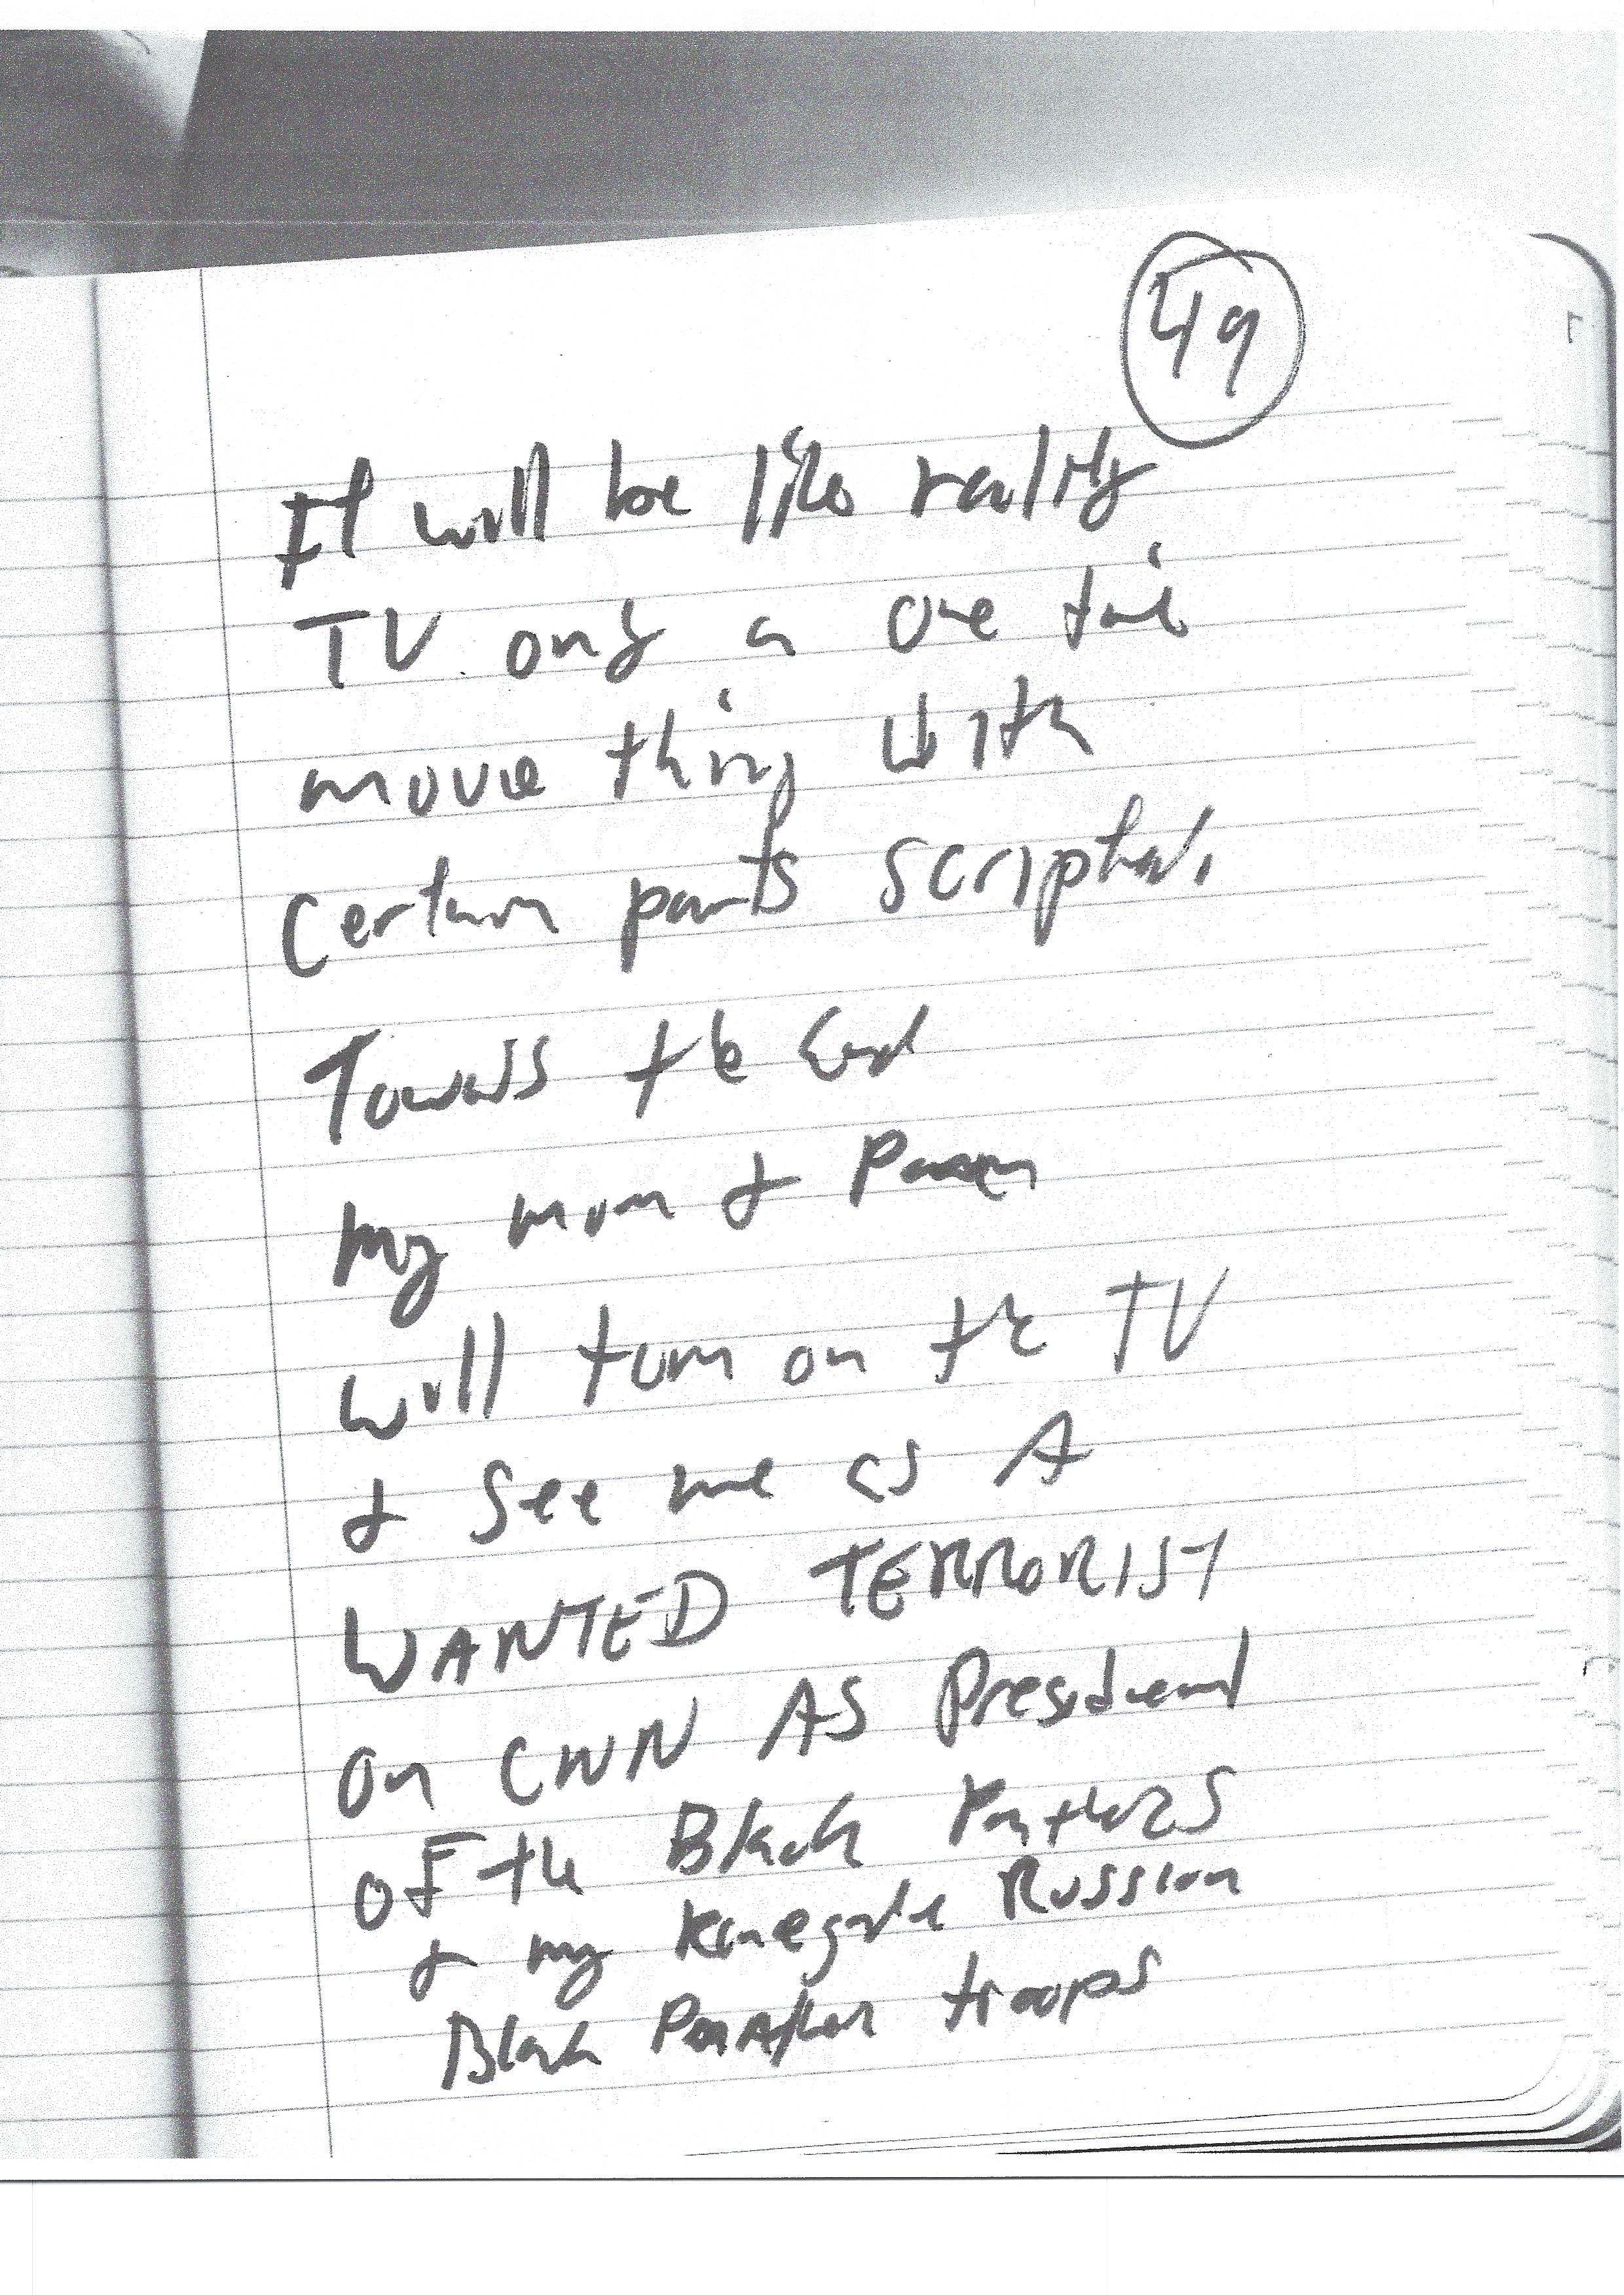 49
It will be like reality
TV only a one time
movie thing with
certain parts scripted.
Towards the End
my mom &
will turn on the TV
& See me as A
WANTED TERRORIST
on CNN AS President
OF the Black Panthers
& my Renegade Russian
Black Panther troops